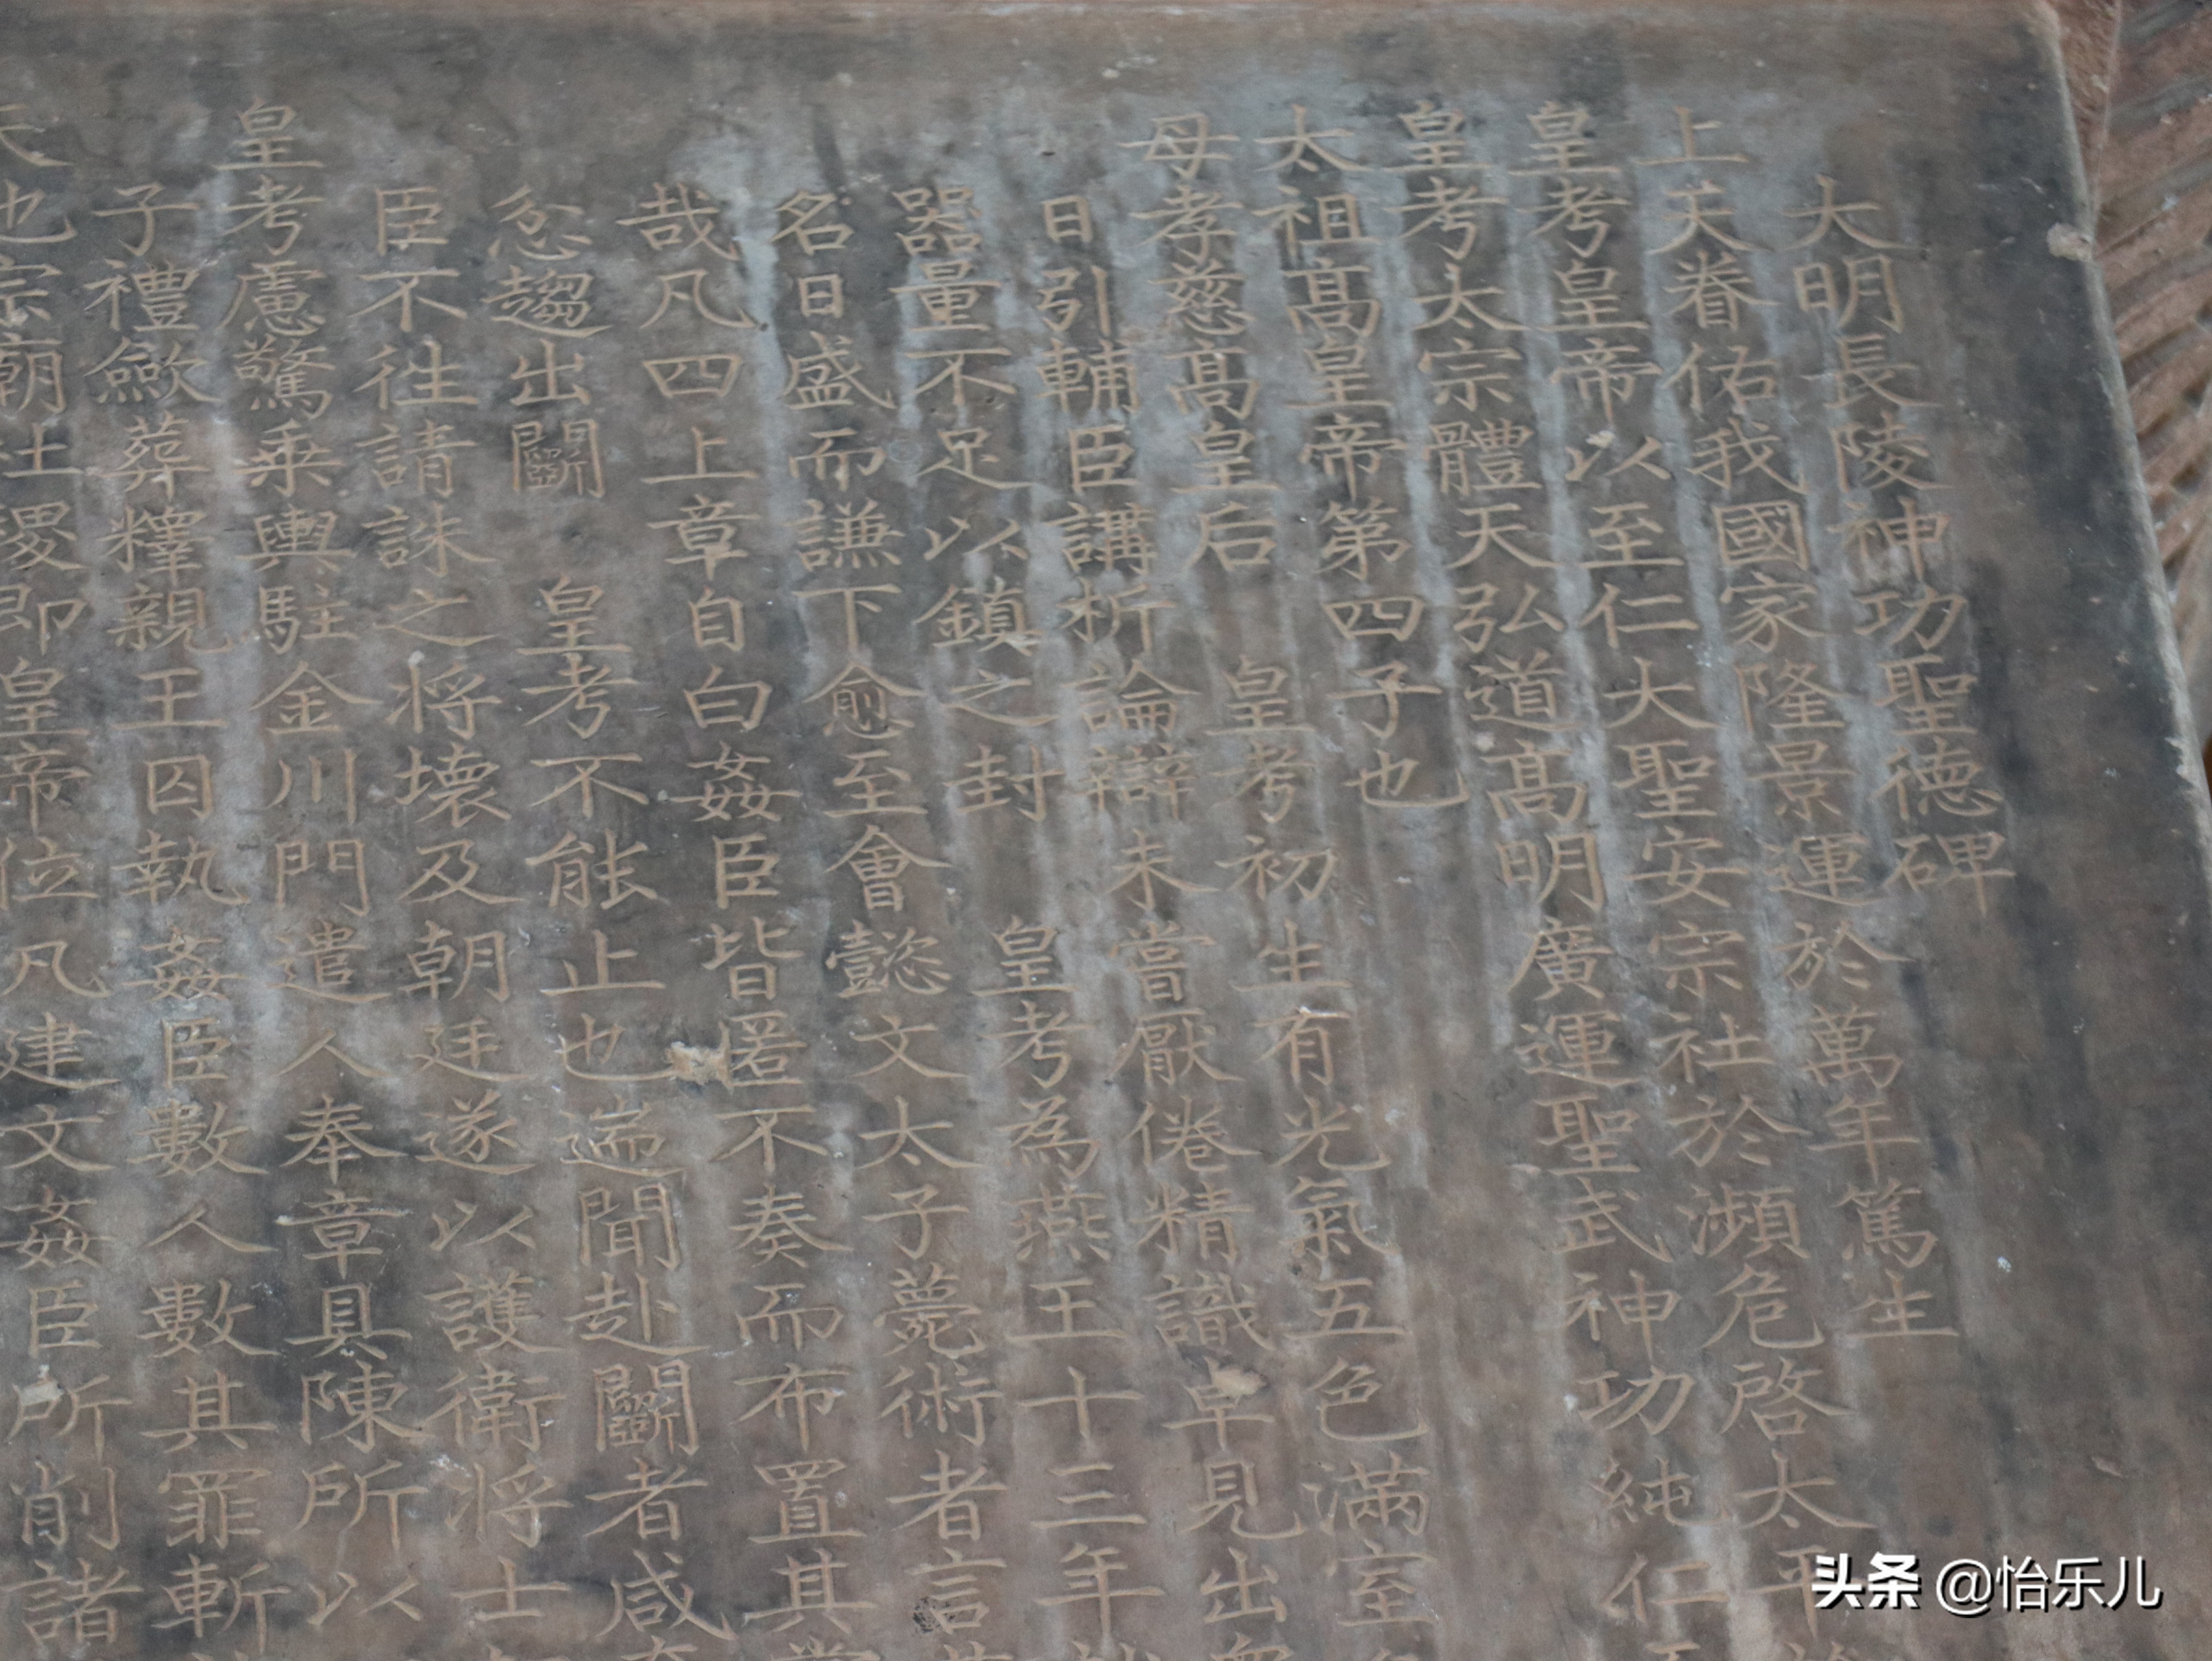 大明長陵神功聖德碑
上天眷佑我國家隆景運於萬年篤生
皇考皇帝以至仁大聖安宗社於瀕危啓太平
皇考太宗體天弘道高明廣運聖武神功純仁
太祖高皇帝第四子也
母孝慈高皇后 皇考初生有光氣五色滿室
日引輔臣講析論辯未嘗厭倦精識卓見出
器量不足以鎮之封 皇考為燕王十三年
名日盛而謙下愈至會懿文太子薨術者言
哉凡四上章自白姦臣皆匿不奏而布置其
忿趨出闕 皇考不能止也遄聞赴闕者咸
臣不往請誅之將壞及朝廷遂以護衛將士
皇考慮驚乘輿駐金川門遣人奉章具陳所以
子禮斂葬釋親王囚執姦臣數人數其罪斬
天也宗朝社稷即皇帝位凡建文姦臣所削諸
头条 @怡乐儿